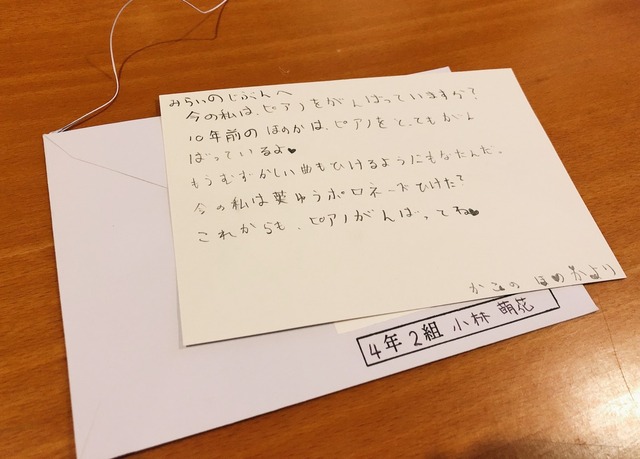 みらいのじぶんへ
今の私は、ピアノをがんばっていますか?
10年前のほのかは、ピアノをとってもがん
ばっているよ♥
もうむずかしい曲もひけるようにもなたんだ。
今の私は葉ゆうポロネーズひけた?
これからも、ピアノがんばってね♥
かこのほのかより
4年2組 小林 萌花